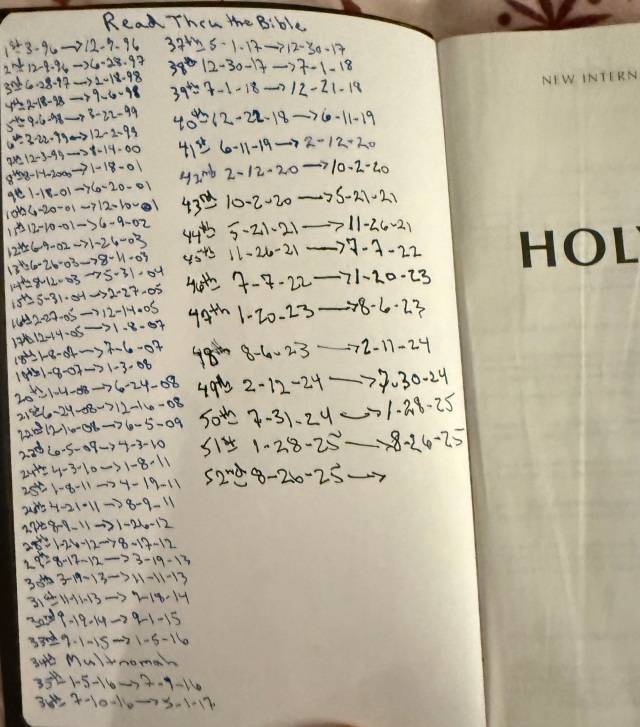 Read Thru the Bible
1st 3-96 → 12-9-96
2nd 12-9-96 → 6-28-97
3rd 6-28-97 → 2-18-98
4th 2-18-98 → 9-6-98
5th 9-6-98 → 3-22-99
6th 3-22-99 → 12-2-99
7th 12-3-99 → 8-14-00
8th 8-14-2000 → 1-18-01
9th 1-18-01 → 6-20-01
10th 6-20-01 → 12-10-01
11th 12-10-01 → 6-9-02
12th 6-9-02 → 1-26-03
13th 6-26-03 → 8-11-03
14th 8-12-03 → 5-31-04
15th 5-31-04 → 2-27-05
16th 2-27-05 → 12-14-05
17th 12-14-05 → 1-8-07
18th 1-8-07 → 7-6-07
19th 1-8-07 → 1-3-08
20th 1-4-08 → 6-24-08
21st 6-24-08 → 12-16-08
22nd 12-16-08 → 6-5-09
23rd 6-5-09 → 4-3-10
24th 4-3-10 → 1-8-11
25th 1-8-11 → 4-19-11
26th 4-21-11 → 8-9-11
27th 8-9-11 → 1-26-12
28th 1-26-12 → 8-17-12
29th 8-17-12 → 3-19-13
30th 3-19-13 → 11-11-13
31st 11-11-13 → 9-18-14
32nd 9-19-14 → 9-1-15
33rd 9-1-15 → 1-5-16
34th Multnomah
35th 1-5-16 → 7-9-16
36th 7-10-16 → 5-1-17
37th 5-1-17 → 12-30-17
38th 12-30-17 → 7-1-18
39th 7-1-18 → 12-21-18
40th 12-22-18 → 6-11-19
41st 6-11-19 → 2-12-20
42nd 2-12-20 → 10-2-20
43rd 10-2-20 → 5-21-21
44th 5-21-21 → 11-26-21
45th 11-26-21 → 7-7-22
46th 7-7-22 → 1-20-23
47th 1-20-23 → 8-6-23
48th 8-6-23 → 2-11-24
49th 2-12-24 → 7-30-24
50th 7-31-24 → 1-28-25
51st 1-28-25 → 8-26-25
52nd 8-26-25 →
NEW INTERN
HOL